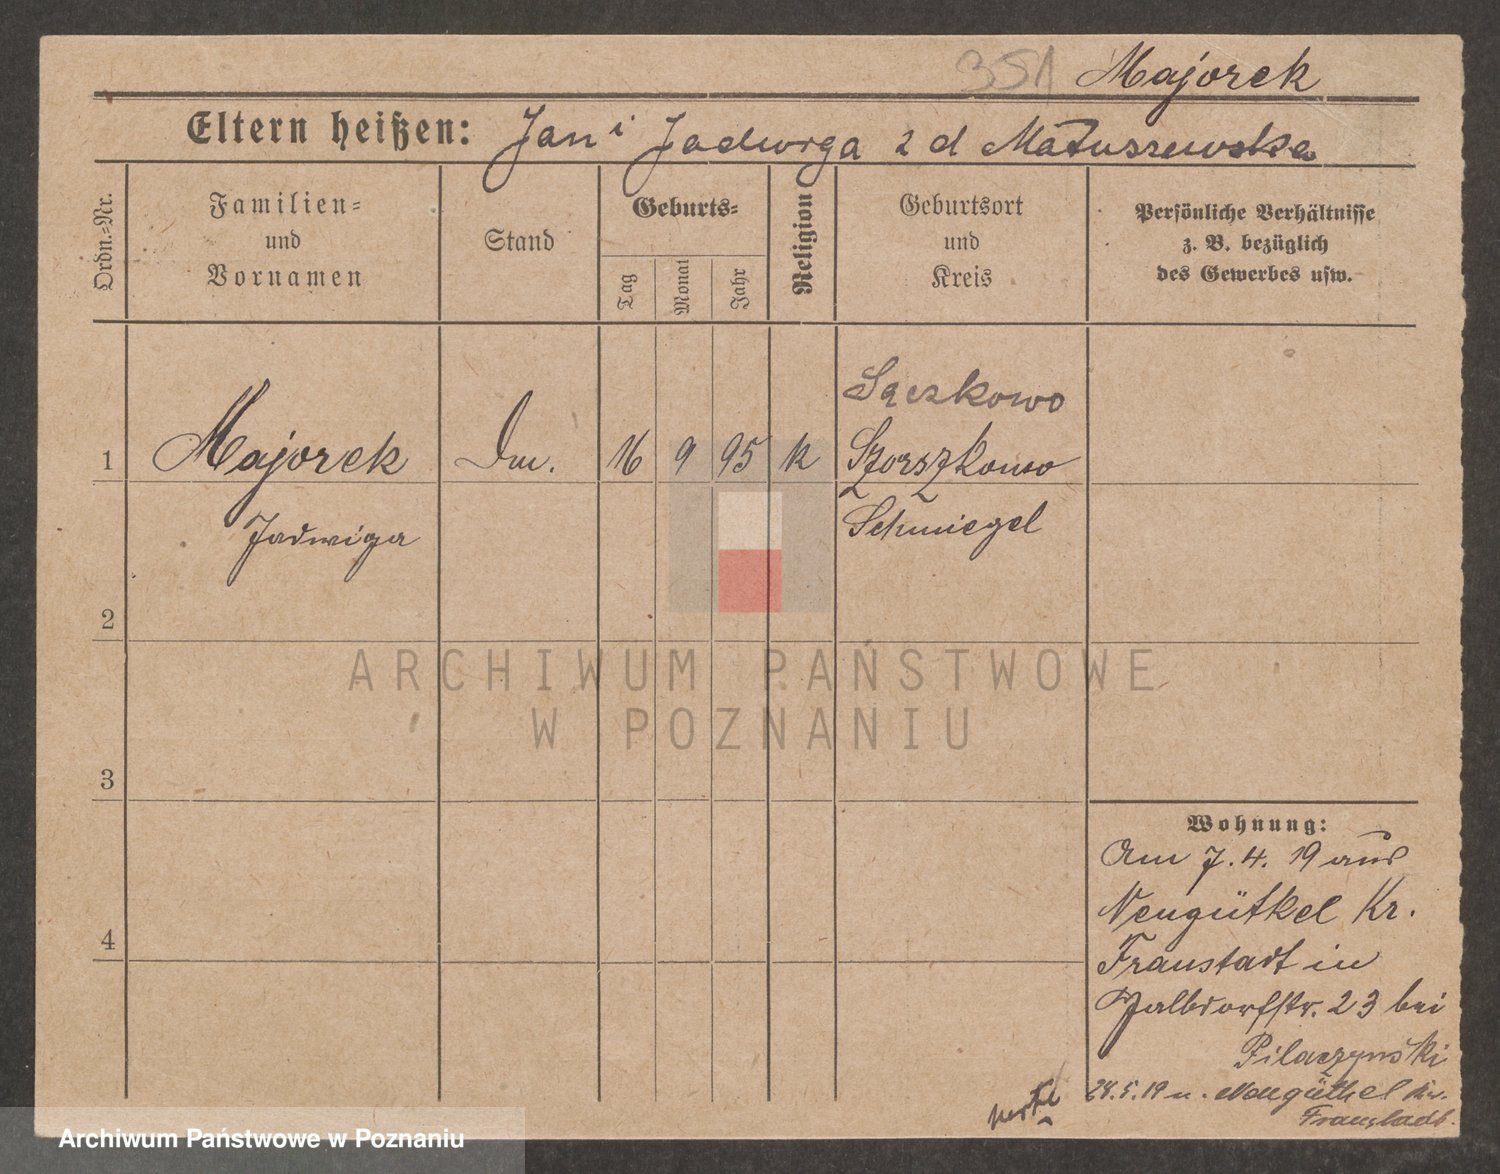 351 Majorek
Eltern heißen: Jan i Jadwiga z d Matuszewska
Ordn.-Nr.
Familien-
und
Vornamen
Stand
Geburts-
Tag
Monat
Jahr
Religion
Geburtsort
und
Kreis
Persönliche Verhältnisse
z. B. bezüglich
des Gewerbes usw.
Sączkowo
1 Majorek Dm. 16 9 95 k Szorszkowo
Jadwiga Schmiegel
2
3
4
Wohnung:
Am 7.4. 19 aus
Neugütkel Kr.
Fraustadt in
Halbdorfstr. 23 bei
Pilaczyński
24.5.19 n. Neugüthel Kr.
Fraustadt.
ARCHIWUM PAŃSTWOWE
W POZNANIU
Archiwum Państwowe w Poznaniu